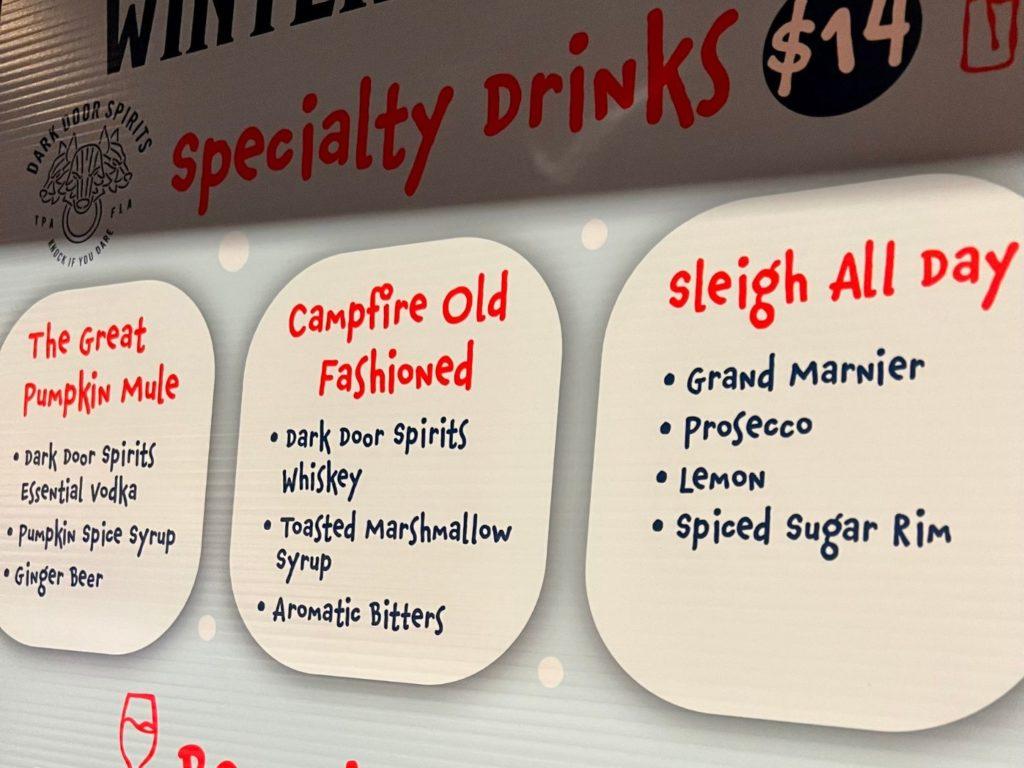 Specialty Drinks $14
DARK DOOR SPIRITS
TPA FLA
KNOCK IF YOU DARE
The Great
Pumpkin Mule
• Dark Door Spirits
Essential Vodka
• Pumpkin Spice Syrup
• Ginger Beer
Campfire Old
Fashioned
• Dark Door Spirits
Whiskey
• Toasted Marshmallow
Syrup
• Aromatic Bitters
Sleigh All Day
• Grand Marnier
• Prosecco
• Lemon
• Spiced Sugar Rim